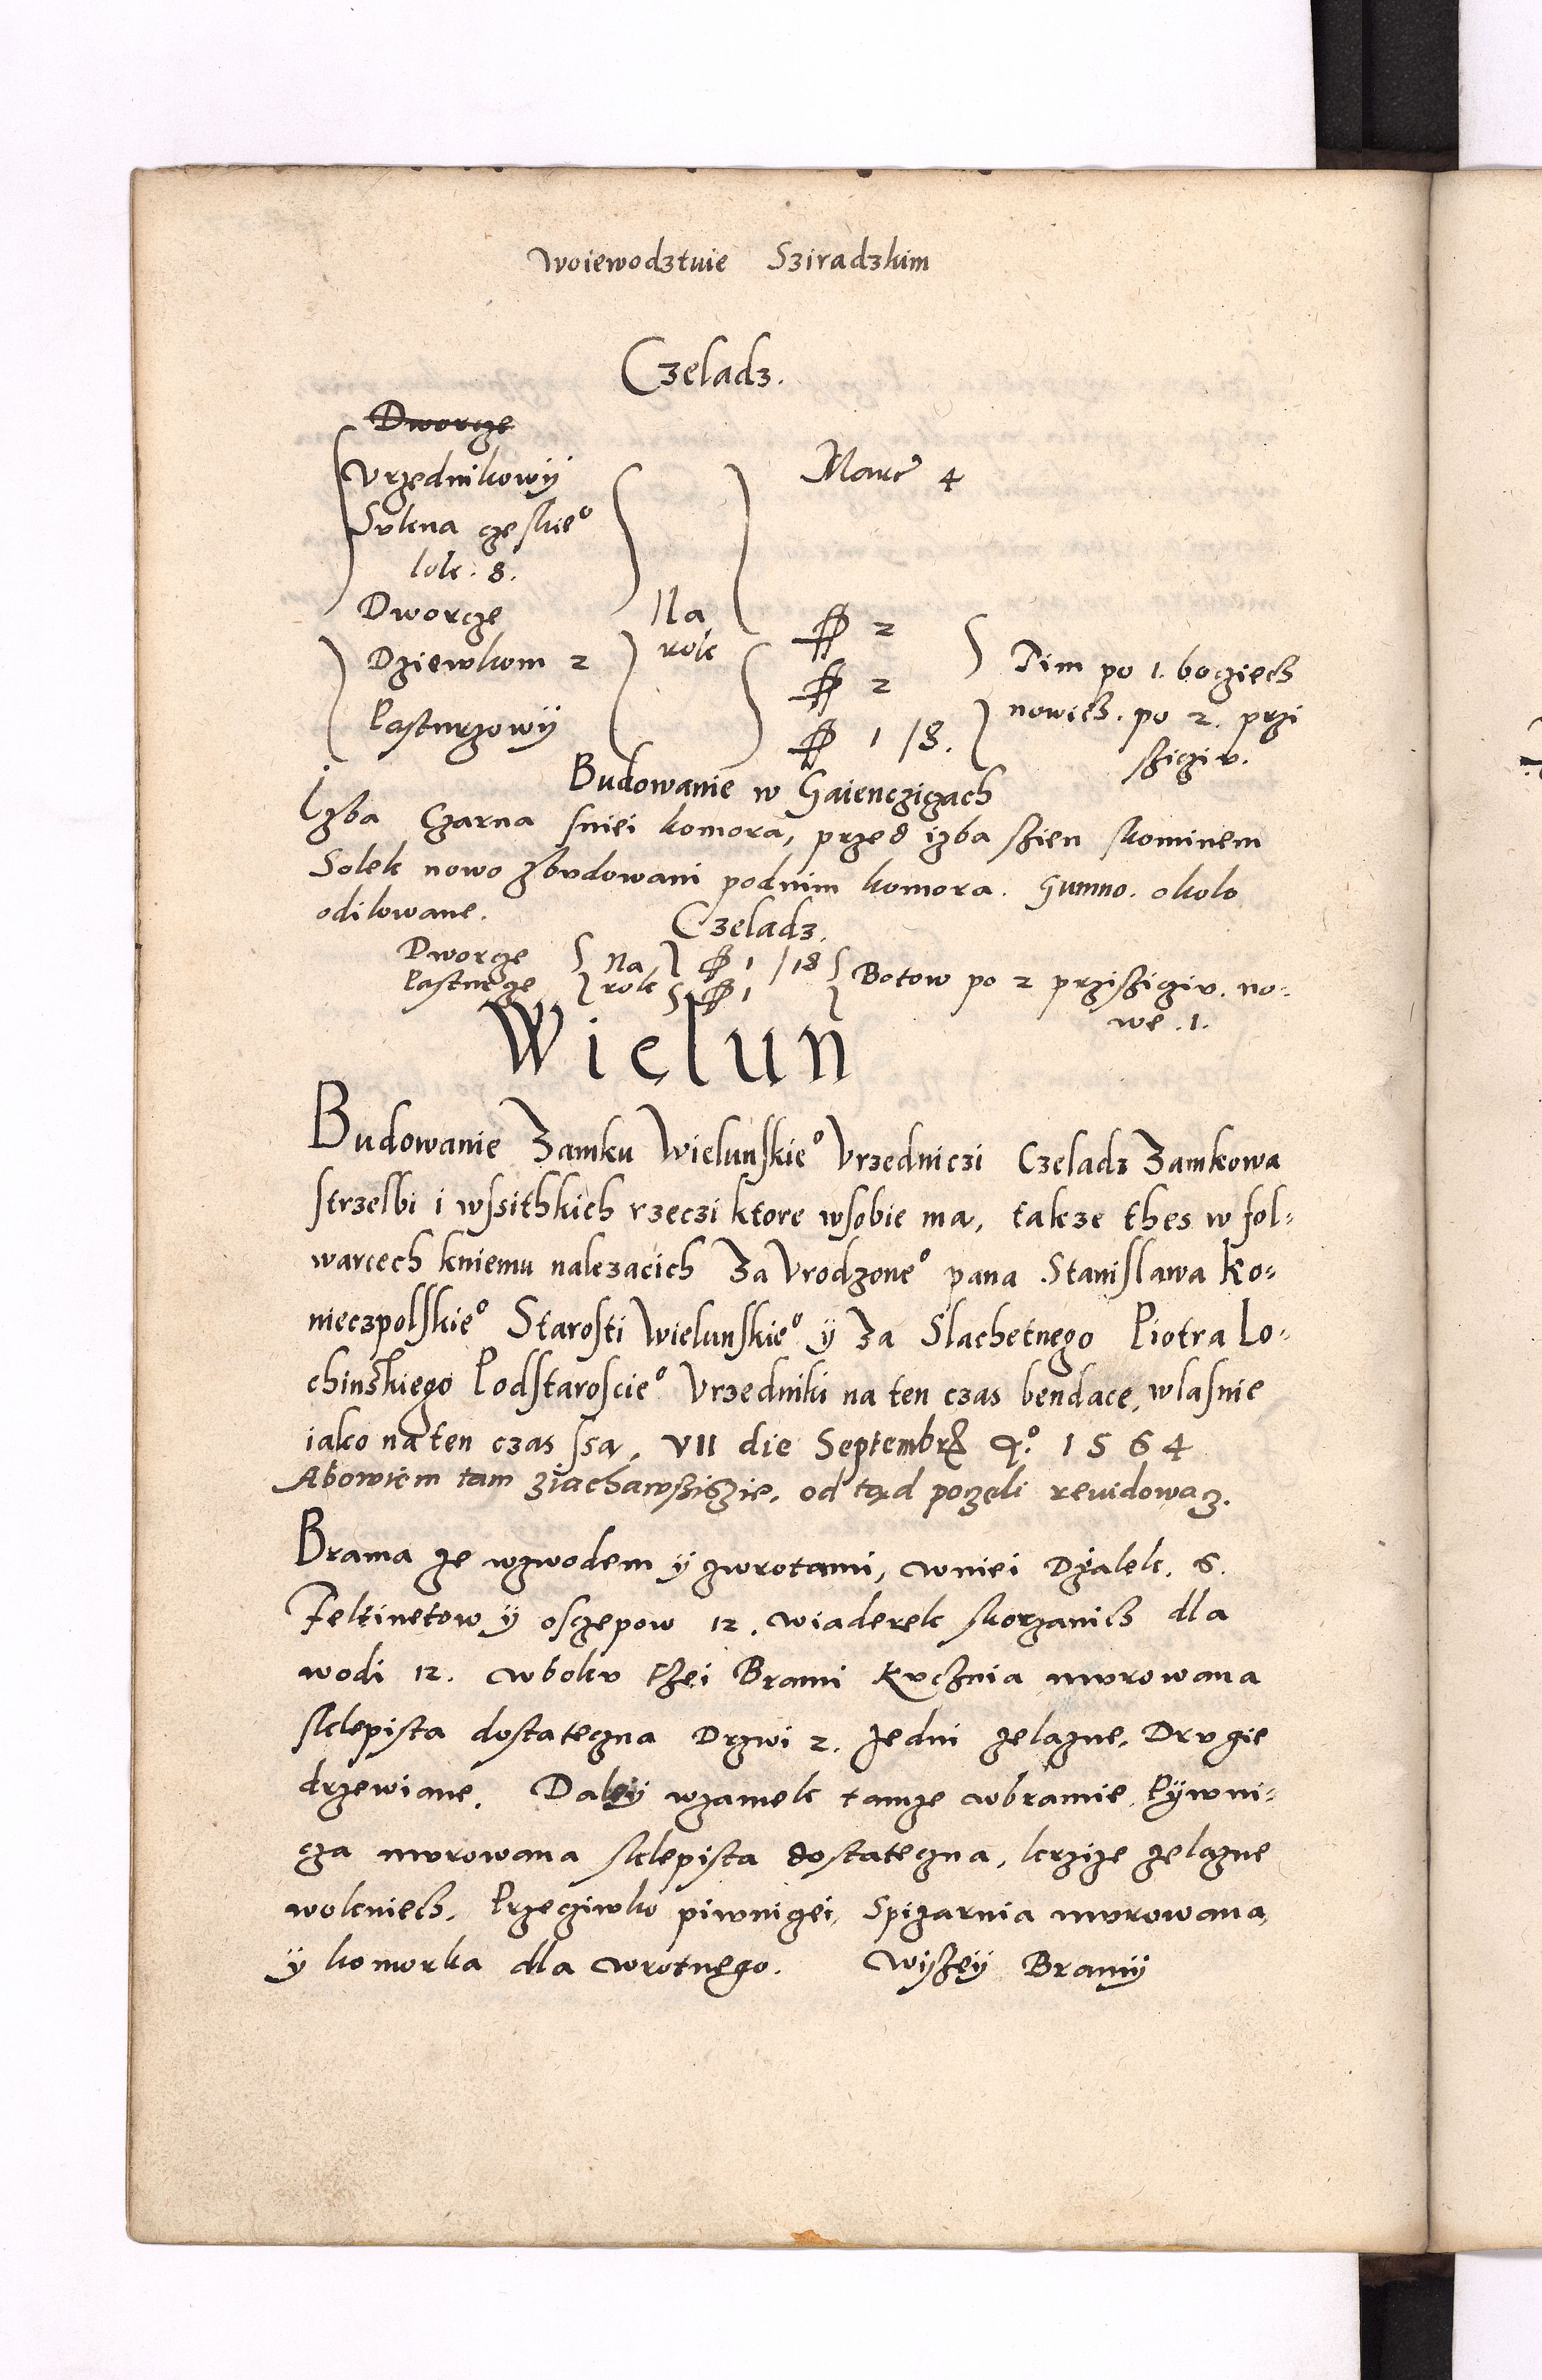 Woiewodztwie Sziradzkim
Czeladz.
Dworcze
Vrzednikowÿ
Sukna czeskie°
lok. 8.
Marc 4
Dworcze
Na
rok
2
Dziewkom 2
2
Tim po 1. bocziech
Pasturzowÿ
1 /8.
nowich. po 2. przi
sziciv.
Budowanie w Gaienczicach
Izba Czarna sniei komora, przed izba szien skominem
Solek nowo zbvdowani podnim komora. Gumno. okolo
odilowane.
Czeladz.
Dworcze Na 1 /18
Pasturze rok 1 Botow po 2 prziszičiv. no-
we .1.
Wielun
Budowanie Zamku Wielunskie° Vrzedniczi Czeladz Zamkowa
strzelbi i wssithkich rzeczi ktore wsobie ma, takze thes w fol-
warcech kniemu nalezacich Za Vrodzone° pana Stanislawa Ko-
nieczpolskie° Starosti Wielunskie° ÿ za Slachetnego Piotra Lo-
chinskiego Podstaroscie° Vrzedniki na ten czas bendace, wlasnie
iako na ten czas ssa, VII die Septembr 1564
Abowiem tam ziachawszisie, od tąd poczeli reuidowacz.
Brama ze wzwodem ÿ zwrotami, wniei Dzialek. 6.
Feltinetow ÿ osczepow 12. wiaderek skorzanich dla
wodi 12. wbokv thei Brami Kvchnia mvrowana
sklepista dostateczna Drzwi 2. Jedni zelazne, Drvgie
drzewiane. Daleÿ wzamek tamze wbramie, Pÿwni-
cza mvrowana sklepista dostateczna, krzize zelazne
wokniech. Przecziwko piwnicei, Spizarnia mvrowana,
ÿ komorka dla wrotnego. Wiszeÿ Bramÿ